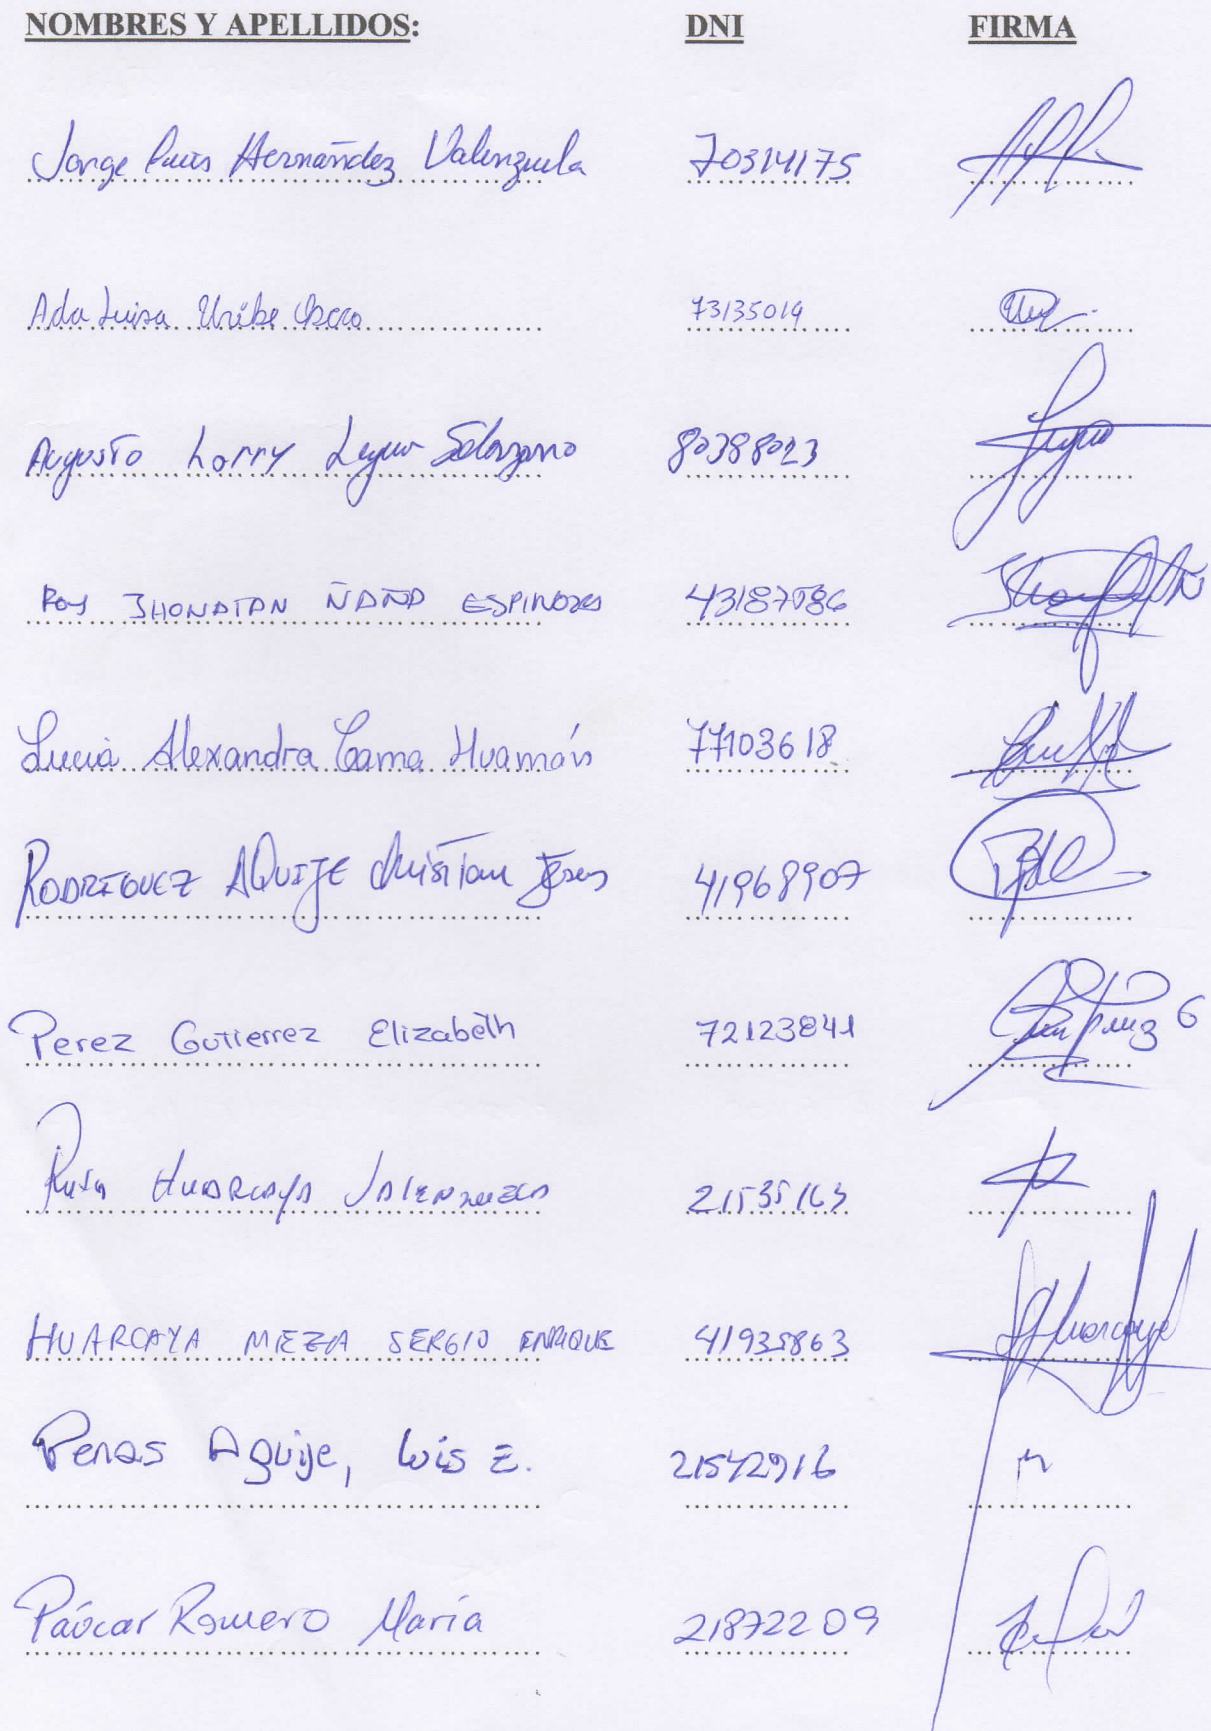 NOMBRES Y APELLIDOS: DNI FIRMA
Jorge Luis Hernández Valenzuela 70314175
Ada Luisa Uribe 73135019
Augusto Lorry 80388023
Roy JHONATAN ÑAÑA ESPINOZA 43187086
Lucia Alexandra Cama Huamán 77103618
RODRIGUEZ AQUIJE Christian Jesus 41968907
Perez Gutierrez Elizabeth 72123841
HUARCAYA VALENZUELA 21535163
HUARCAYA MEZA SERGIO ENRIQUE 41935863 Huarcaya
Penas Aquije, Luis E. 21542916
Páucar Romero María 21872209